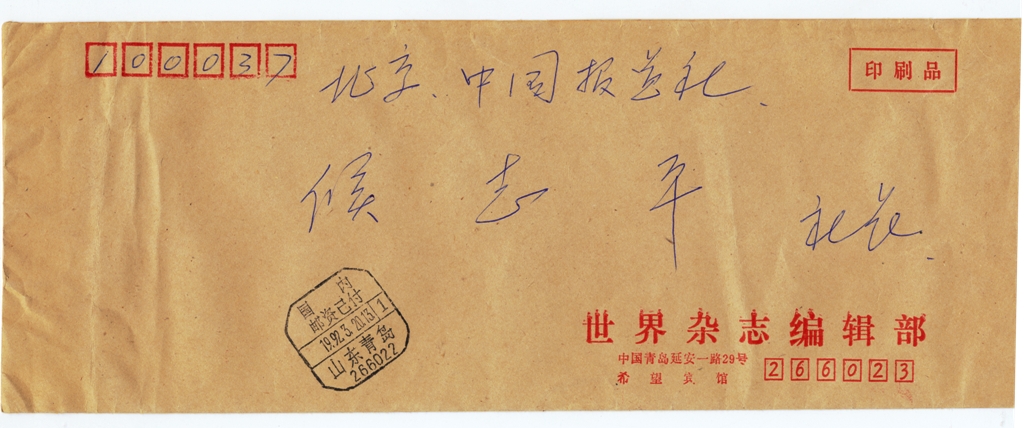 100037
北京、中国报道社、
印刷品
侯志平
社长.
国内
邮资已付
1992.3.20.13 1
山东青岛
266022
世界杂志编辑部
中国青岛延安一路29号
希望宾馆 266023